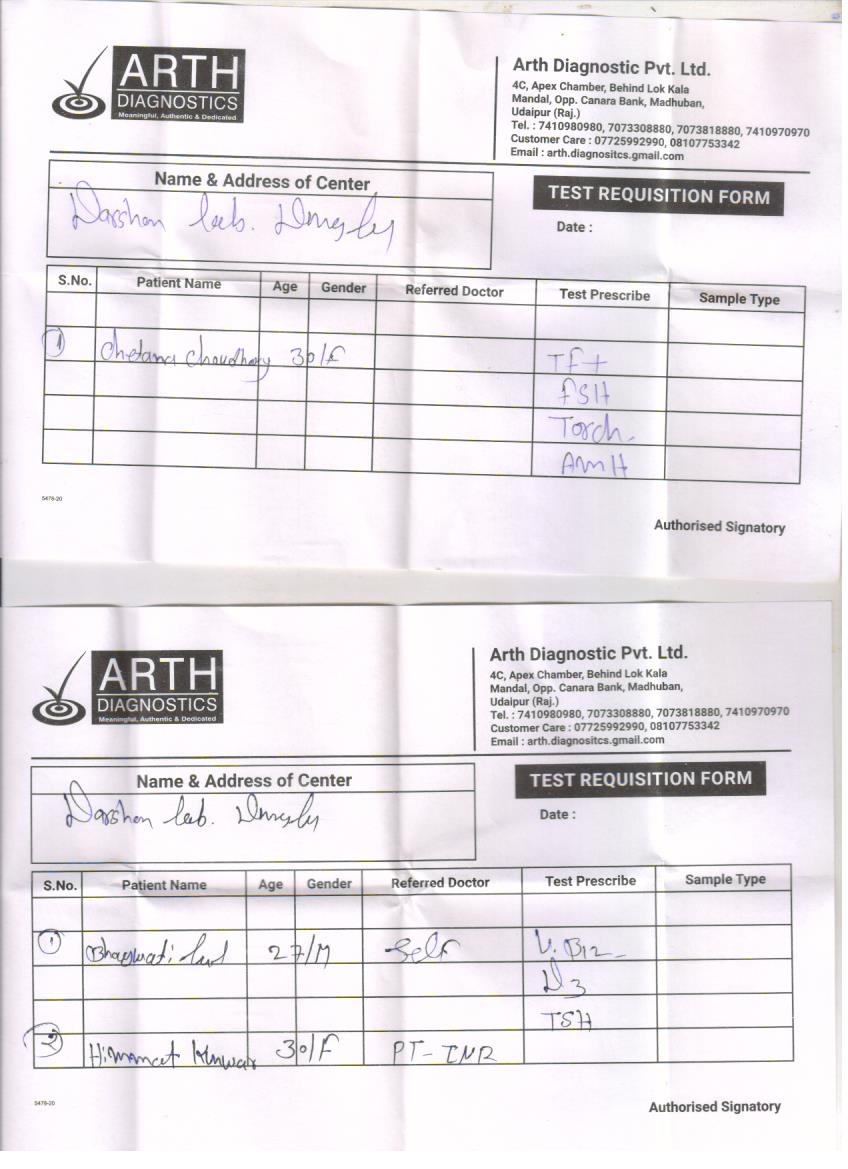 ARTH
DIAGNOSTICS
Meaningful, Authentic & Dedicated
Arth Diagnostic Pvt. Ltd.
4C, Apex Chamber, Behind Lok Kala
Mandal, Opp. Canara Bank, Madhuban,
Udaipur (Raj.)
Tel. : 7410980980, 7073308880, 7073818880, 7410970970
Customer Care : 07725992990, 08107753342
Email : arth.diagnositcs.gmail.com
Name & Address of Center
TEST REQUISITION FORM
Darshan Lab.
Date :
S.No. Patient Name Age Gender Referred Doctor Test Prescribe Sample Type
1 Chetana Choudhary 30/F TFT
FSH
Torch
AMH
5478-20
Authorised Signatory
ARTH
DIAGNOSTICS
Meaningful, Authentic & Dedicated
Arth Diagnostic Pvt. Ltd.
4C, Apex Chamber, Behind Lok Kala
Mandal, Opp. Canara Bank, Madhuban,
Udaipur (Raj.)
Tel. : 7410980980, 7073308880, 7073818880, 7410970970
Customer Care : 07725992990, 08107753342
Email : arth.diagnositcs.gmail.com
Name & Address of Center
TEST REQUISITION FORM
Darshan Lab.
Date :
S.No. Patient Name Age Gender Referred Doctor Test Prescribe Sample Type
1 Bhagwati 27/M Self V. B12
D3
TSH
२ 30/F PT-INR
5478-20
Authorised Signatory